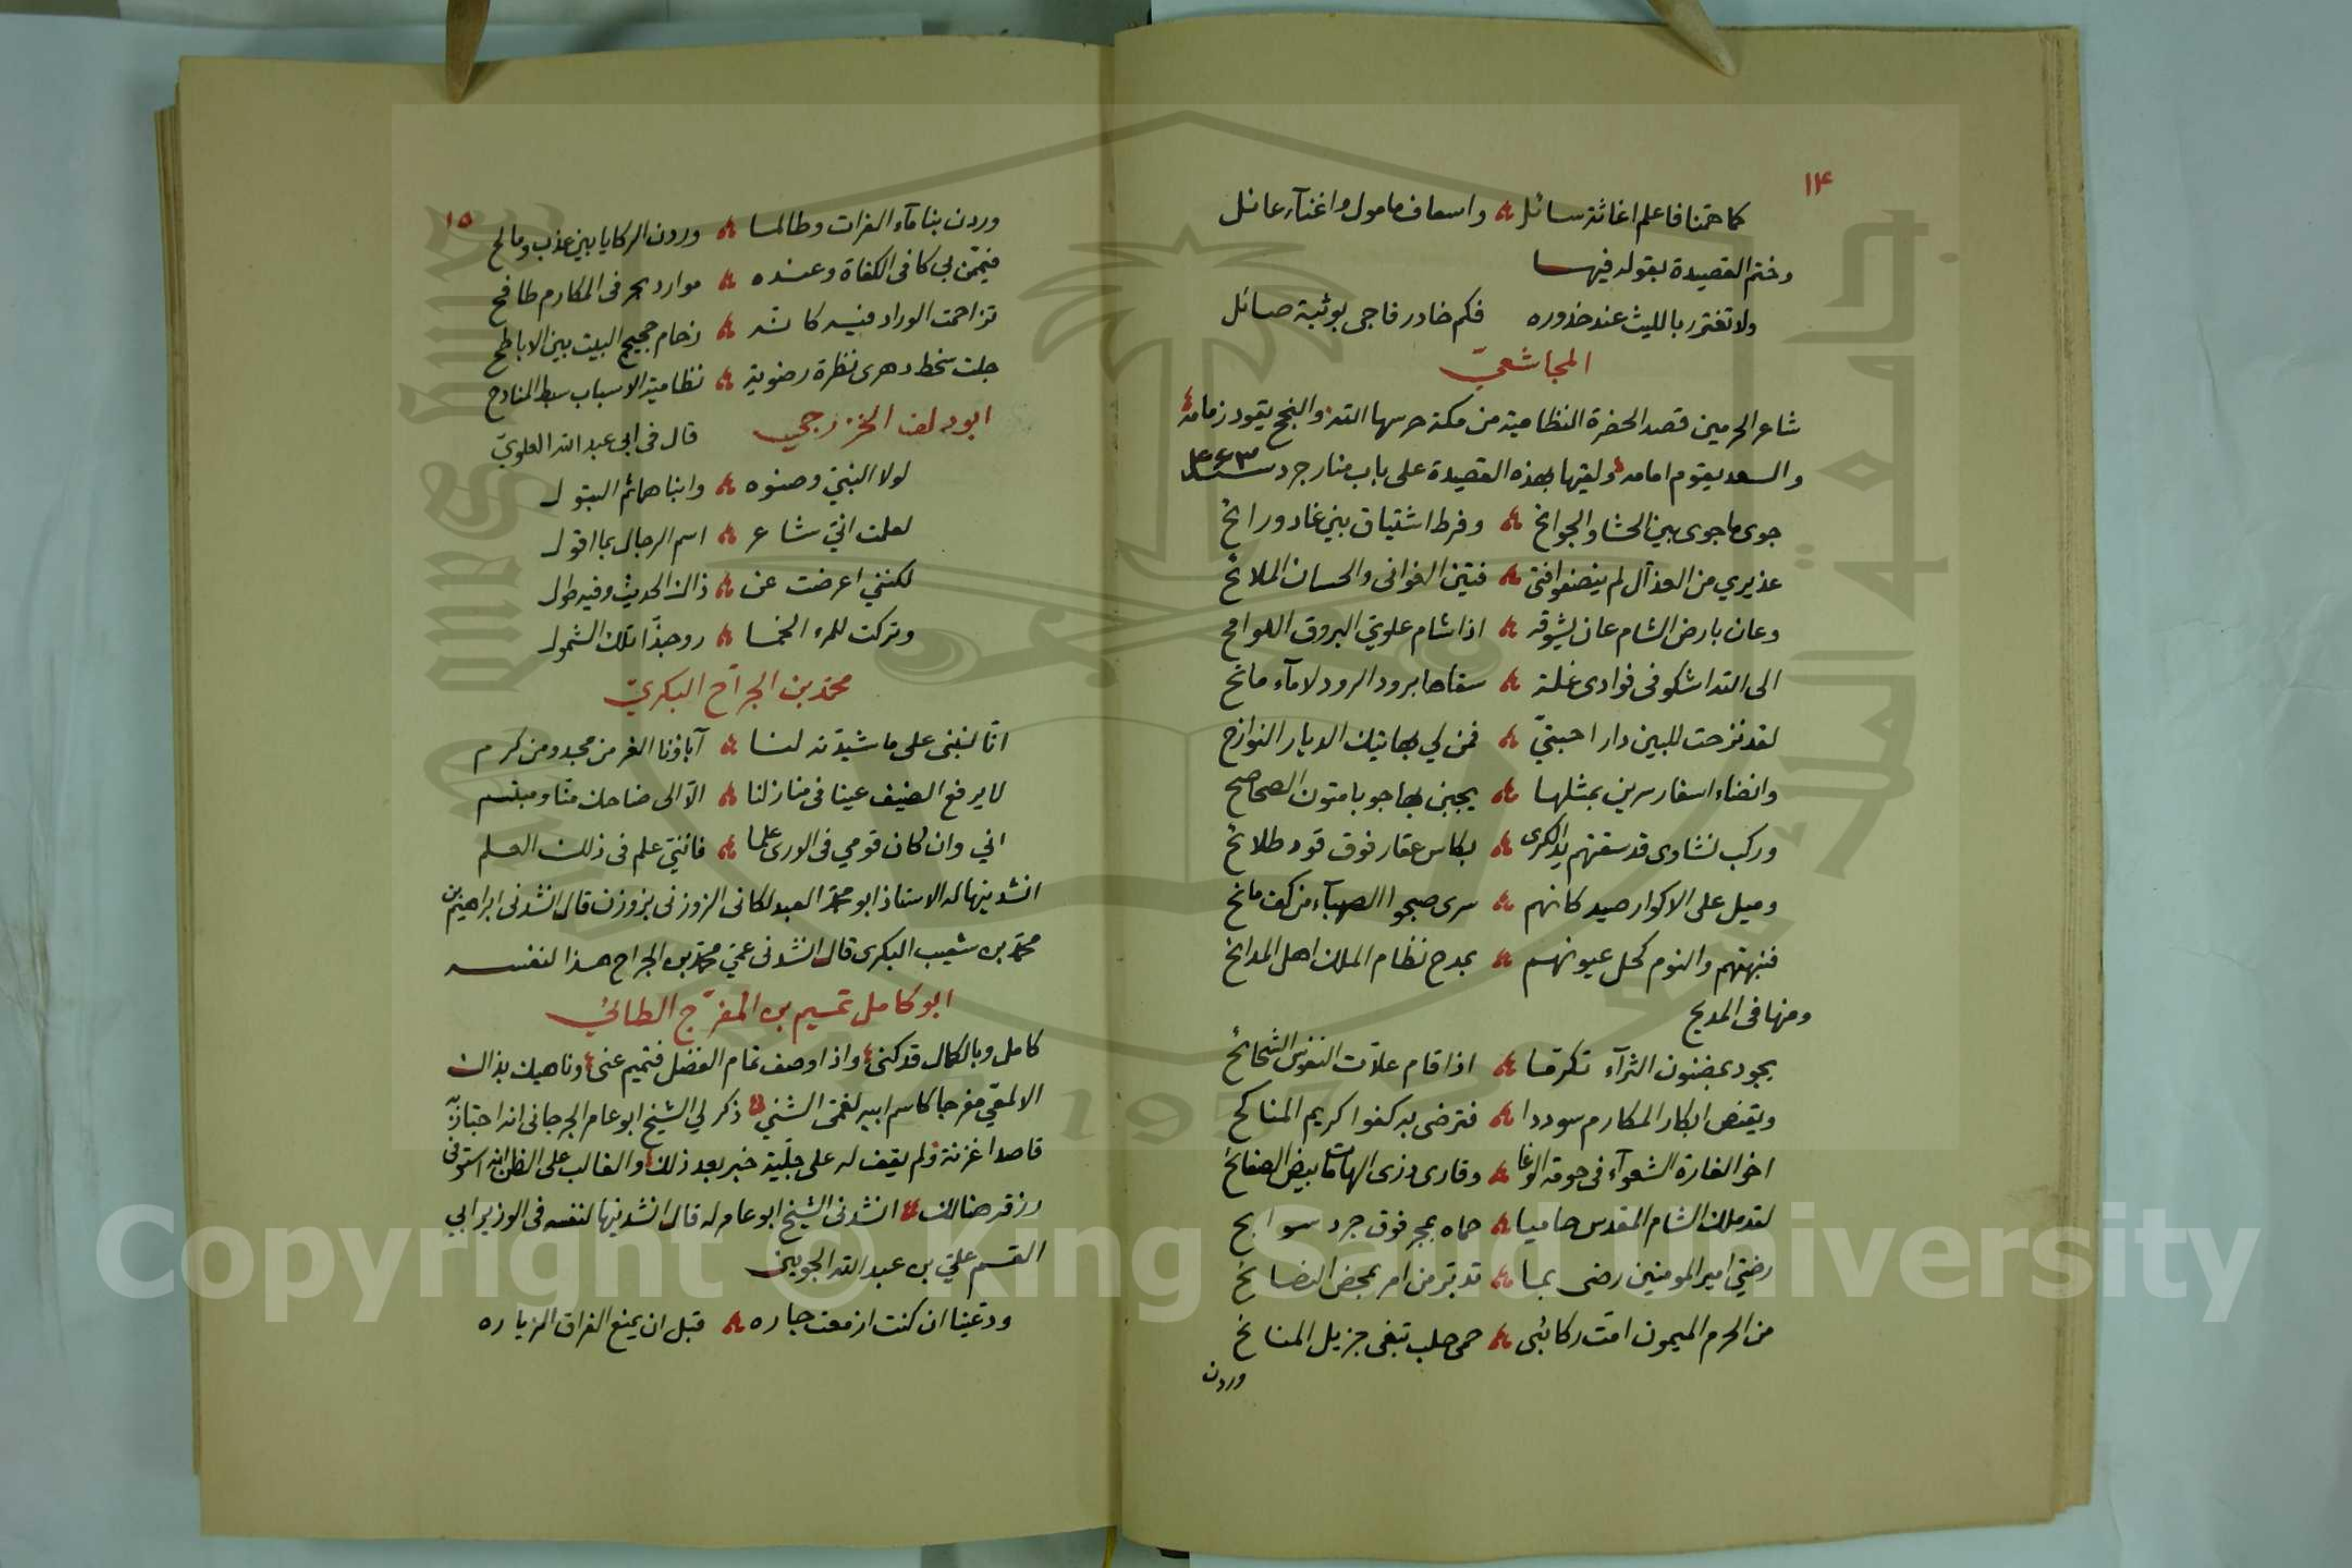 ١٤
كما همنا فاعلم اغاثة سائل واسعاف مامول واغنآء عائل
وختم القصيدة بقوله فيها
ولا تغترر بالليث عند خدوره فكم خادر فاجى بوثبة صائل
المجاشعيّ
شاعر الحرمين قصد الحضرة النظامية من مكة حرسها الله والنجح يقود زمامه
والسعد يقوم امامه ولقيها بهذه القصيدة على باب منازجرد سنة ٤٦٣
جوى ما جوى بين الحشا والجوانح وفرط اشتياق بين غاد ورائح
عذيري من العذال لم ينصفوا فتى فتين الغوانى والحسان الملائح
وعان بارض الشام عان يشوقه اذا شام علويّ البروق اللوامح
الى الله اشكو فى فوادى غلة سقاها برود الرود لا مآء مائح
لقد نزحت للبين دار احبتيّ فمن لي بهاتيك الديار النوازح
وانضاء اسفار سرين بمثلها يجبن بها جوبا متون الصحاصح
وركب نشاوى قد سقتهم يد الكرى بكاس عقار فوق قود طلائح
وميل على الاكوار صيد كانهم سرى صبحوا الصهبآء من كف مانح
فنبهتهم والنوم كحل عيونهم بمدح نظام الملك اهل المدائح
ومنها فى المديح
يجود بمضنون الثرآء تكرما اذا قام علات النفوس الشحائح
ويقتض ابكار المكارم سوددا فترضى به كفوا كريم المناكح
اخو الغارة الشعوآء فى حومة الوغا وقارى ذرى الهامات بيض الصفائح
لقد ملك الشام المقدس حاميا حماه بمجر فوق جرد سوابح
رضيّ امير المومنين رضى بما تدبّر من امر بمحض النصائح
من الحرم الميمون امّت ركائبى حمى حلب تبغى جزيل المنائح
وردن
١٥
وردن بنا مآء الفرات وطالما وردن الركايا بين عذب ومالح
فيمّمن بي كافى الكفاة وعنده موارد بحر فى المكارم طافح
تزاحمت الوراد فيه كانه زحام حجيج البيت بين الاباطح
جلت سخط دهرى نظرة رضوية نظامية الاسباب سبط المنادح
ابو دلف الخزرجي قال فى ابى عبد الله العلويّ
لولا النبيّ وصنوه وابناهما ثم البتول
لعلمت انيّ شاعر اسم الرجال بما اقول
لكنني اعرضت عن ذاك الحديث وفيه طول
وتركت للمرء الخما روحبذا تلك الشمول
محمّد بن الجرّاح البكريّ
انّا لنبنى على ما شيدته لنا آباؤنا الغر من مجد ومن كرم
لا يرفع الضيف عينا فى منازلنا الّا الى ضاحك منّا ومبتسم
اني وان كان قومي فى الورى علما فاننيّ علم فى ذلك العلم
انشدنيها له الاستاذ ابو محمّد العبدلكانى الزوزنى بزوزن قال انشدنى ابراهيم بن
محمّد بن شعيب البكرى قال انشدنى عمّي محمّد بن الجراح هذا لنفسه
ابو كامل تميم بن المفرّج الطائي
كامل وبالكمال قد كنى واذا وصف تمام الفضل فتميم عنى وناهيك بذاك
الالمعّي مفرجا كاسم ابيه لغمى الشئي ذكر لي الشيخ ابو عامر الجرجانى انه اجتاز به
قاصدا غزنة ولم يقف له على جليّة خبر بعد ذلك والغالب على الظن انه استوفى
رزقه هنالك انشدنى الشيخ ابو عامر له قال انشدنيها لنفسه فى الوزير ابي
القسم عليّ بن عبد الله الجوينى
ودّعينا ان كنت ازمعت جاره قبل ان يمنع الفراق الزياره
Copyright © King Saud University
1957